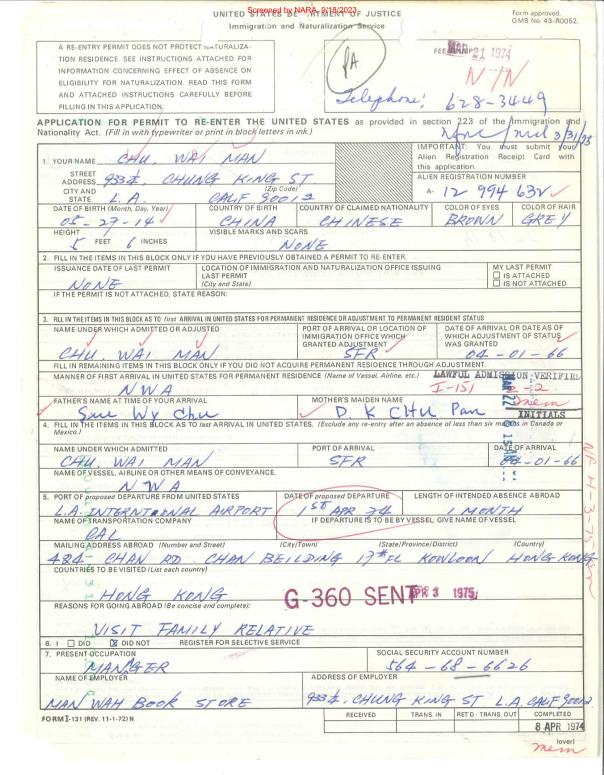 Screened by NARA, 9/18/2023
UNITED STATES DEPARTMENT OF JUSTICE
Immigration and Naturalization Service
Form approved.
OMB No. 43-R0052.
A RE-ENTRY PERMIT DOES NOT PROTECT NATURALIZA-
TION RESIDENCE. SEE INSTRUCTIONS ATTACHED FOR
INFORMATION CONCERNING EFFECT OF ABSENCE ON
ELIGIBILITY FOR NATURALIZATION. READ THIS FORM
AND ATTACHED INSTRUCTIONS CAREFULLY BEFORE
FILLING IN THIS APPLICATION.
PA
FEE STAMP
MAR 21 1974
NIN
Telephone: 628-3449
APPLICATION FOR PERMIT TO RE-ENTER THE UNITED STATES as provided in section 223 of the Immigration and
Nationality Act. (Fill in with typewriter or print in block letters in ink.)
1. YOUR NAME CHU, WAI MAN
IMPORTANT: You must submit your
Alien Registration Receipt Card with
this application.
STREET
ADDRESS 933½, CHUNG KING ST
(Zip Code)
CITY AND
STATE L.A. CALF 90012
ALIEN REGISTRATION NUMBER
A- 12 994 632
DATE OF BIRTH (Month, Day, Year)
05-27-14
COUNTRY OF BIRTH
CHINA
COUNTRY OF CLAIMED NATIONALITY
CHINESE
COLOR OF EYES
BROWN
COLOR OF HAIR
GREY
HEIGHT
5 FEET 6 INCHES
VISIBLE MARKS AND SCARS
NONE
2. FILL IN THE ITEMS IN THIS BLOCK ONLY IF YOU HAVE PREVIOUSLY OBTAINED A PERMIT TO RE-ENTER.
ISSUANCE DATE OF LAST PERMIT
NONE
LOCATION OF IMMIGRATION AND NATURALIZATION OFFICE ISSUING
LAST PERMIT
(City and State)
MY LAST PERMIT
IS ATTACHED
IS NOT ATTACHED
IF THE PERMIT IS NOT ATTACHED, STATE REASON:
3. FILL IN THE ITEMS IN THIS BLOCK AS TO first ARRIVAL IN UNITED STATES FOR PERMANENT RESIDENCE OR ADJUSTMENT TO PERMANENT RESIDENT STATUS
NAME UNDER WHICH ADMITTED OR ADJUSTED
CHU, WAI MAN
PORT OF ARRIVAL OR LOCATION OF
IMMIGRATION OFFICE WHICH
GRANTED ADJUSTMENT
SFR
DATE OF ARRIVAL OR DATE AS OF
WHICH ADJUSTMENT OF STATUS
WAS GRANTED
04-01-66
FILL IN REMAINING ITEMS IN THIS BLOCK ONLY IF YOU DID NOT ACQUIRE PERMANENT RESIDENCE THROUGH ADJUSTMENT.
MANNER OF FIRST ARRIVAL IN UNITED STATES FOR PERMANENT RESIDENCE (Name of Vessel, Airline, etc.)
NWA
LAWFUL ADMISSION VERIFIED
I-151
mem
INITIALS
FATHER'S NAME AT TIME OF YOUR ARRIVAL
Sau Wy Chu
MOTHER'S MAIDEN NAME
D. K CHU Pan
4. FILL IN THE ITEMS IN THIS BLOCK AS TO last ARRIVAL IN UNITED STATES. (Exclude any re-entry after an absence of less than six months in Canada or
Mexico.)
NAME UNDER WHICH ADMITTED
CHU, WAI MAN
PORT OF ARRIVAL
SFR
DATE OF ARRIVAL
04-01-66
NAME OF VESSEL, AIRLINE OR OTHER MEANS OF CONVEYANCE.
NWA
5. PORT OF proposed DEPARTURE FROM UNITED STATES
L.A. INTERNTONAL AIRPORT
DATE OF proposed DEPARTURE
1ST APR 74
LENGTH OF INTENDED ABSENCE ABROAD
1 MONTH
NAME OF TRANSPORTATION COMPANY
CAL
IF DEPARTURE IS TO BE BY VESSEL, GIVE NAME OF VESSEL
MAILING ADDRESS ABROAD (Number and Street) (City/Town) (State/Province/District) (Country)
484 CHAN RD CHAN BEILDING 17#FL KOWLOON HONG KONG
COUNTRIES TO BE VISITED (List each country)
HONG KONG
G-360 SENT APR 3 1975
REASONS FOR GOING ABROAD (Be concise and complete):
VISIT FAMILY RELATIVE
6. I DID DID NOT REGISTER FOR SELECTIVE SERVICE
7. PRESENT OCCUPATION
MANGER
SOCIAL SECURITY ACCOUNT NUMBER
564-68-6626
NAME OF EMPLOYER
MAN WAH BOOK STORE
ADDRESS OF EMPLOYER
933½, CHUNG KING ST L.A. CALF 90012
FORM I-131 (REV. 11-1-72) N
RECEIVED
TRANS. IN
RET'D - TRANS. OUT
COMPLETED
8 APR 1974
(over)
mem